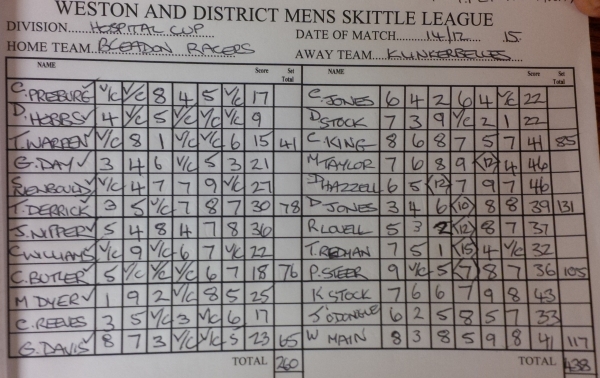 WESTON AND DISTRICT MENS SKITTLE LEAGUE
DIVISION HOSPITAL CUP DATE OF MATCH 14/12 15
HOME TEAM BLEADON RACERS AWAY TEAM KLINKERBELLES
NAME Score Set Total NAME Score Set Total
C. PREBURE V/C V/C 8 4 5 V/C 17 C. JONES 6 4 2 6 4 V/C 22
D. HOBBS 4 V/C 5 V/C V/C V/C 9 D STOCK 7 3 9 V/C 2 1 22
T. WARREN V/C 8 1 V/C V/C 6 15 41 C KING 8 6 8 7 5 7 41 85
G. DAY 3 4 6 V/C 5 3 21 M TAYLOR 7 6 8 9 12 4 46
S V/C 4 7 7 9 V/C 27 HAZZELL 6 5 12 7 9 7 46
T. DERRICK 3 5 V/C 7 8 7 30 78 D JONES 3 4 6 10 8 8 39 131
J. NIPPER 5 4 8 4 7 8 36 R LOVELL 5 3 2 12 8 7 37
C WILLIAMS V/C 9 V/C 6 7 V/C 22 T. REDMAN 7 5 1 15 4 V/C 32
C. BUTLER 5 V/C V/C V/C 6 7 18 76 P. STEER 9 V/C 5 7 8 7 36 105
M DYER 1 9 2 V/C 8 5 25 K STOCK 7 6 6 7 9 8 43
C. REEVES 3 5 V/C 3 V/C 6 17 J 6 2 5 8 5 7 33
G. DAVIS 8 7 3 V/C V/C 5 23 65 W MAIN 8 3 8 5 9 8 41 117
TOTAL 260 TOTAL 438